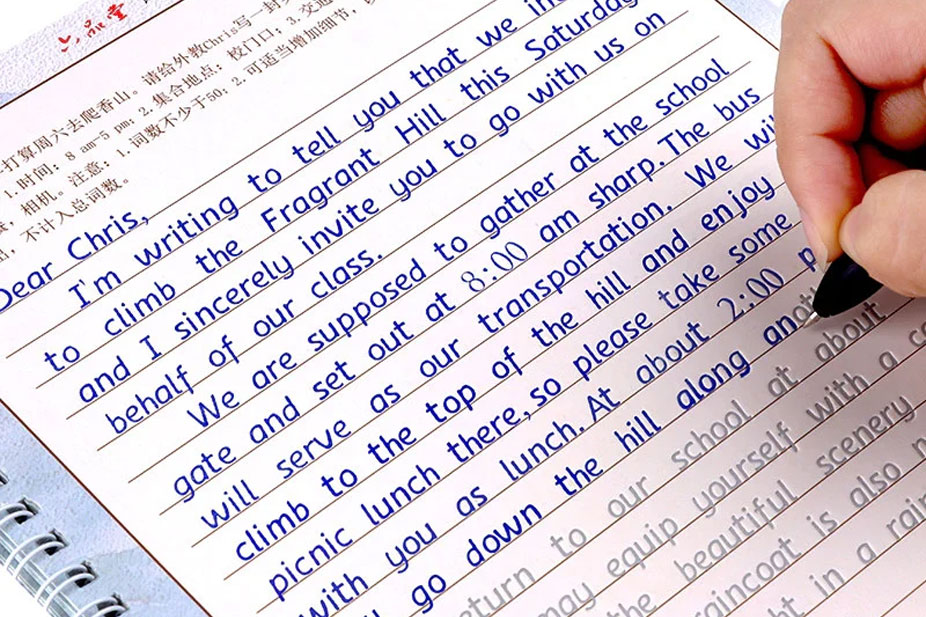 六品堂
打算周六去爬香山。请给外教Chris写一封
1.时间:8 am-5 pm; 2.集合地点:校门口; 3.交通
相机。注意:1.词数不少于50; 2.可适当增加细节,
不计入总词数。
Dear Chris,
I'm writing to tell you that we
to climb the Fragrant Hill this Saturday
and I sincerely invite you to go with us on
behalf of our class.
We are supposed to gather at the school
gate and set out at 8:00 am sharp. The bus
will serve as our transportation. We will
climb to the top of the hill and enjoy
picnic lunch there, so please take some
with you as lunch. At about 2:00
go down the hill along
return to our school at about
may equip yourself with a
the beautiful scenery
raincoat is also
in a